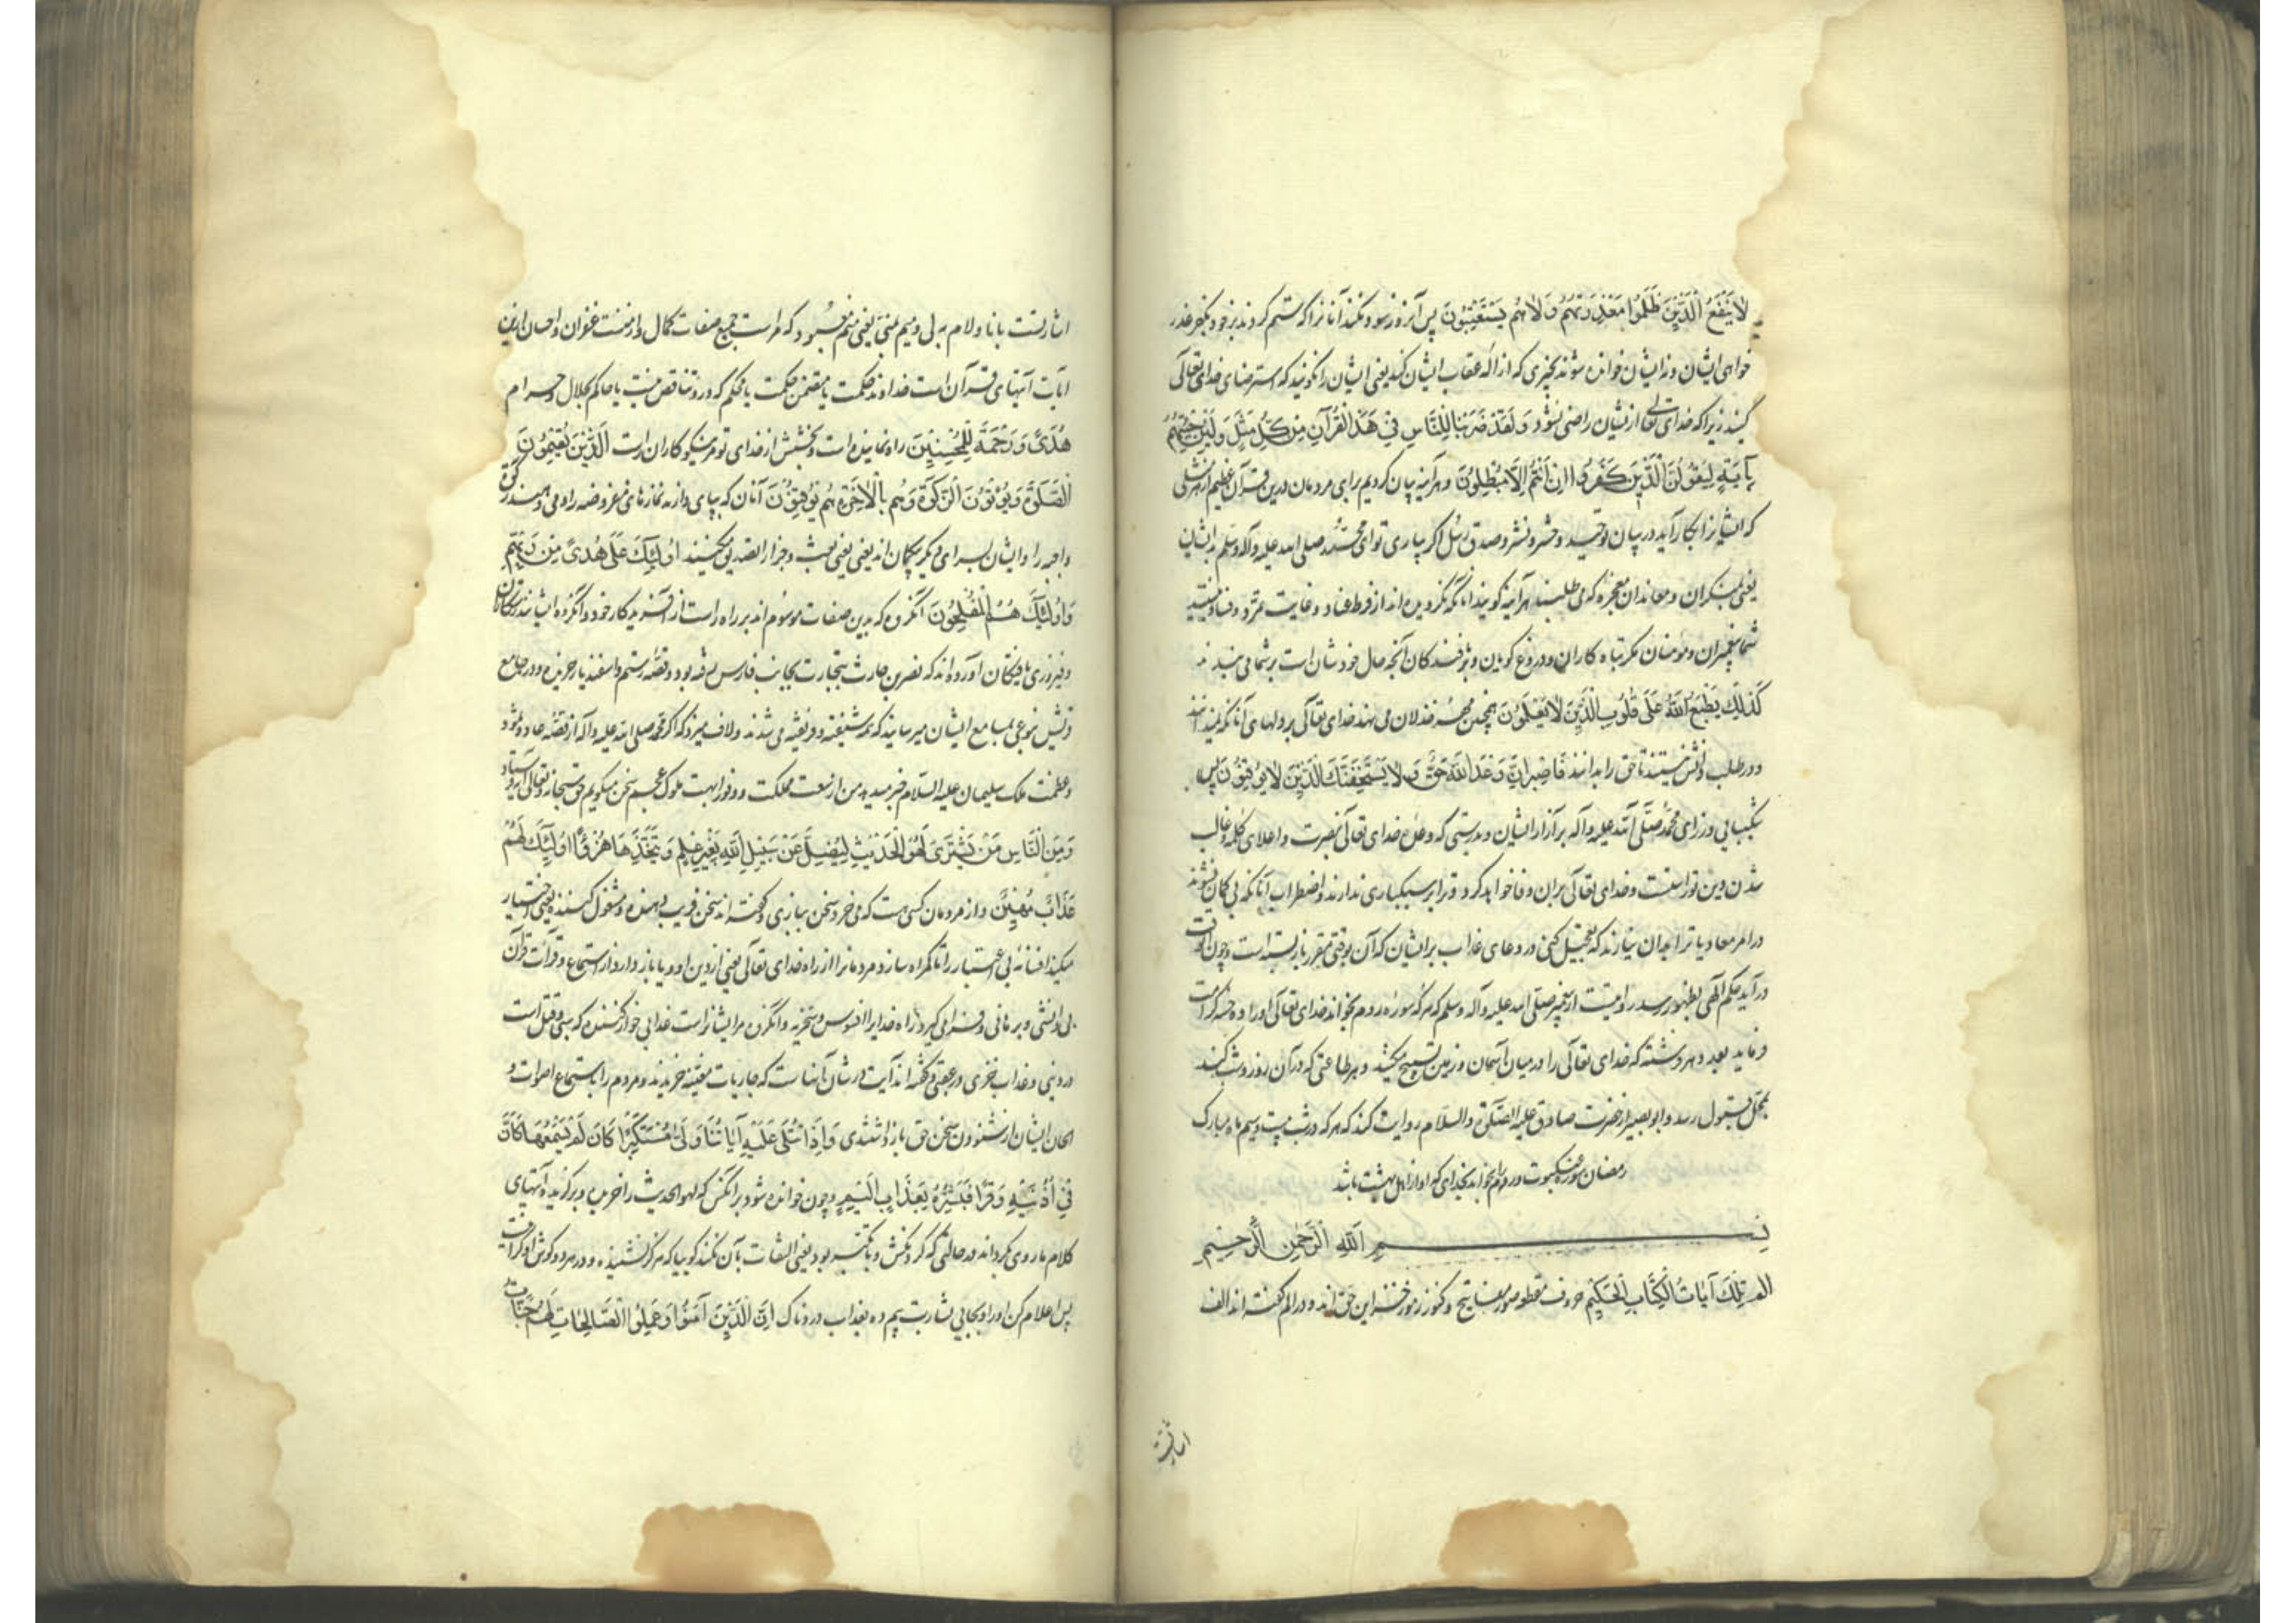 لا يَنفَعُ الَّذينَ ظَلَمُوا مَعذِرَتُهُم وَلا هُم يُستَعتَبُونَ پس آنروز سود نکند آنانرا که ستم کردند بر خود بکفر عذر
خواهی ایشان و نه ایشان خوانده شوند بچیزی که ازاله عقاب ایشان کند یعنی ایشان را نگویند که استرضای خدای تعالی
کنید زیرا که خدای تعالی از ایشان راضی نشود وَلَقَد ضَرَبنا لِلنّاسِ في هذَا القُرآنِ مِن كُلِّ مَثَلٍ وَلَئِن جِئتَهُم
بِآيَةٍ لَيَقُولَنَّ الَّذينَ كَفَرُوا اِن اَنتُم اِلّا مُبطِلُونَ و هر آینه بیان کردیم برای مردمان درین قرآن عظیم از هر مثلی
که ایشانرا بکار آید در بیان توحید و حشر و نشر و صدق رسل اگر بیاری تو ای محمد صلی الله علیه و آله وسلم بدیشان
یعنی منکران و معاندان معجزه که می طلبند هر آینه گویند آنانکه نگرویده اند از فرط عناد و غایت تمرد و فساد نیستید
شما پیغمبران و مؤمنان مگر تباه کاران و دروغ گویان و آنچه حال خودشان است بر شما می بندند
كَذلِكَ يَطبَعُ اللهُ عَلى قُلُوبِ الَّذينَ لا يَعلَمُونَ همچنین مهر خذلان می نهد خدای تعالی بر دلهای آنانکه نمیدانند
و در طلب دانش نیستند تا حق را بدانند فَاصبِر اِنَّ وَعدَ اللهِ حَقٌّ وَلا يَستَخِفَّنَّكَ الَّذينَ لا يُوقِنُونَ پس
شکیبایی ورز ای محمد صلی الله علیه و آله بر آزار ایشان و بدرستی که وعده خدای تعالی بنصرت و اعلای کلمه و غالب
شدن دین تو راست و خدای تعالی بران وفا خواهد کرد و ترا بر سبکباری ندارند و اضطراب آنانکه بی گمان نشوند
در امر معاد یا ترا بدان نیارند که تعجیل کنی در دعای عذاب بر ایشان که آن بوقتی مقرر باز بسته است و چون وقت
درآید حکم الهی بظهور رسد روایتست از پیغمبر صلی الله علیه و آله وسلم که هر که سوره روم بخواند خدای تعالی او را ده حسنه کرامت
فرماید بعدد هر فرشته که خدای تعالی را در میان آسمان و زمین تسبیح میکنند و هر طاعتی که در آن روز و شب کنند
بمحل قبول رسد و ابو بصیر از حضرت صادق علیه الصلوة والسلام روایت کند که هر که در شب بیست و سیم ماه مبارک
رمضان سوره عنکبوت و روم بخواند بخدای که او از اهل بهشت باشد
بِسمِ اللهِ الرَّحمنِ الرَّحيمِ
الم تِلكَ آياتُ الكِتابِ الحَكيمِ حروف مقطعه صور مفاتیح و کنوز رموز خزینه این حق اند و در الم گفته اند الف
اشارتست
اشارتست بانا و لام به لی و میم بمنی یعنی منم که مراست جمیع صفات کمال و از منست غفران و احسان این
آیات آیتهای قرآن است خداوند حکمت یا متضمن حکمت یا محکم که در و تناقض نیست یا حاکم بحلال و حرام
هُدىً وَرَحمَةً لِلمُحسِنينَ راه نماینده است و بخشش از خدای تو مر نیکوکاران راست اَلَّذينَ يُقيمُونَ
الصَّلوةَ وَيُؤتُونَ الزَّكوةَ وَهُم بِالآخِرَةِ هُم يُوقِنُونَ آنان که بپای دارند نمازهای مفروضه را و می دهند زکوة
واجبه را و ایشان بسرای دیگر بیگمان اند یعنی بعث و جزا را تصدیق میکنند اُولئِكَ عَلى هُدىً مِن رَبِّهِم
وَاُولئِكَ هُمُ المُفلِحُونَ آنگروه که بدین صفات موسوم اند بر راه راست از آفریدگار خود و آنگروه ایشانند رستگاران
و فیروزی یافتگان آورده اند که نضر بن حارث بتجارت بجانب فارس رفته بود و قصه رستم و اسفندیار خریده و در مجامع
قریش نوعی بمسامع ایشان میرسانید که همه شیفته و فریفته می شدند و لاف میزد که اگر محمد صلی الله علیه و آله از قصه عاد و ثمود
و عظمت ملک سلیمان علیه السلام خبر میدهد من از سعت مملکت و وفور ابهت ملوک عجم سخن میگویم حق سبحانه و تعالی آیه فرستاد
وَمِنَ النّاسِ مَن يَشتَري لَهوَ الحَديثِ لِيُضِلَّ عَن سَبيلِ اللهِ بِغَيرِ عِلمٍ وَيَتَّخِذَها هُزُوًا اُولئِكَ لَهُم
عَذابٌ مُهينٌ و از مردمان کسی هست که می خرد سخن ببازی و گفته اند سخن فریب دهنده و مشغول کننده یعنی اختیار
میکند افسانه بی اعتبار را تا گمراه سازد مردمانرا از راه خدای تعالی یعنی از دین او و یا باز دارد از استماع و قرآت قرآن
بی دانشی و برهانی و فرا می گیرد راه خدایرا افسوس و سخریه و آنگروه مر ایشانراست عذابی خوار کننده که سبی و قتل است
در دنیی و عذاب خزی در عقبی و گفته اند آیت در شان آنهاست که جاریات مغنیه خریدند و مردم را باستماع اصوات و
الحان ایشان از شنودن سخن حق باز داشتندی وَاِذا تُتلى عَلَيهِ آياتُنا وَلّى مُستَكبِرًا كَاَن لَم يَسمَعها كَاَنَّ
في اُذُنَيهِ وَقرًا فَبَشِّرهُ بِعَذابٍ اَليمٍ و چون خوانده شود بر آنکس که لهو الحدیث را خریده و برگزیده آیتهای
کلام ما روی بگرداند در حالتی که گردنکش و با تکبر بود یعنی التفات بآن نکند گوییا که هرگز نشنیده و در هر دو گوش او گرانیست
پس اعلام کن او را و بجایی بشارت بیم ده بعذاب دردناک اِنَّ الَّذينَ آمَنُوا وَعَمِلُوا الصّالِحاتِ لَهُم جَنّاتُ